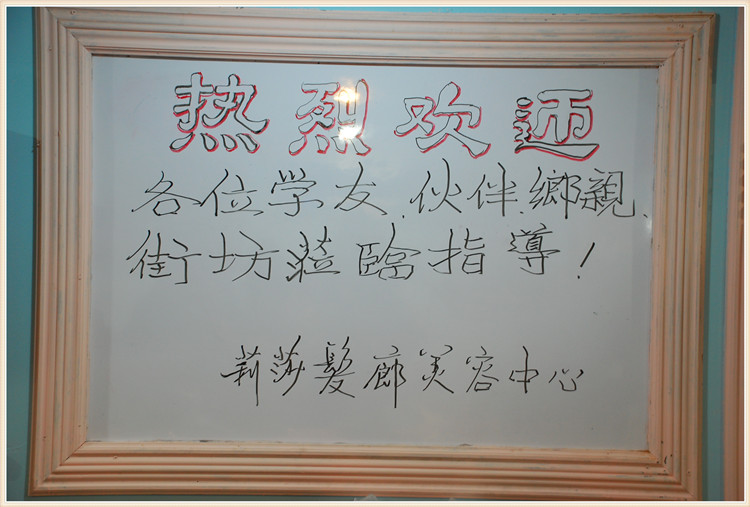 热烈欢迊
各位学友、伙伴、鄉親、
街坊蒞臨指導！
莉莎髮廊美容中心